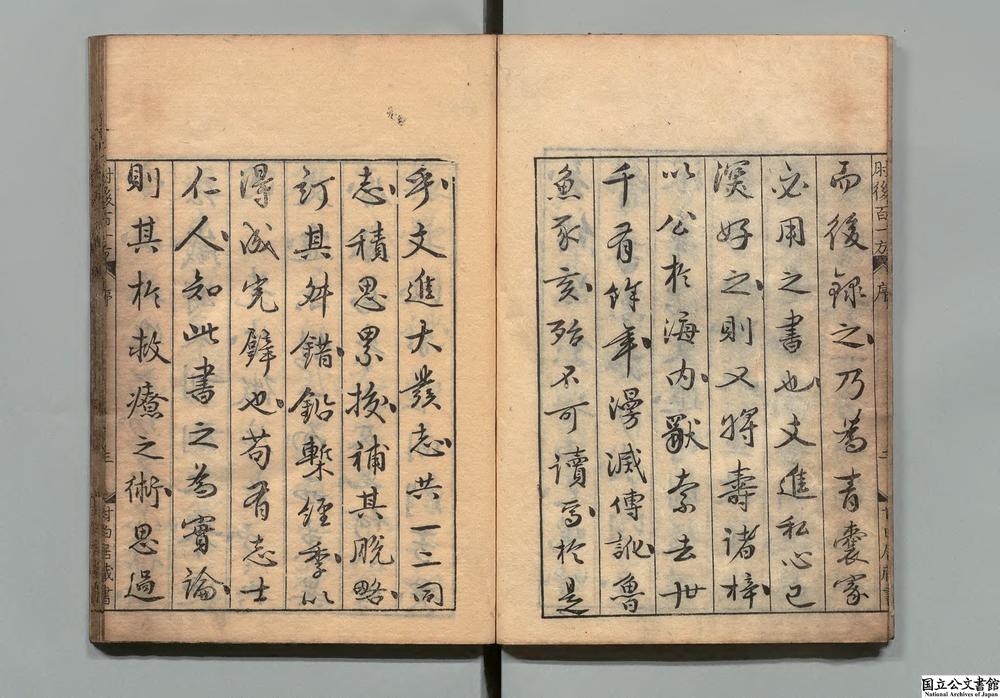 肘後百一方 序
而後録之乃為青囊家
必用之書也文進私心已
深好之則又將壽諸梓
以公於海内獸柰去卅
千有餘年漫滅傳訛魯
魚豕亥殆不可讀焉於是
乎文進大發志共一二同
志積思累挍補其脱略
訂其舛錯鉛槧經季以
得成完璧也苟有志士
仁人知此書之為實論
則其於救療之術思過
肘後百一方 序
國立公文書館
National Archives of Japan